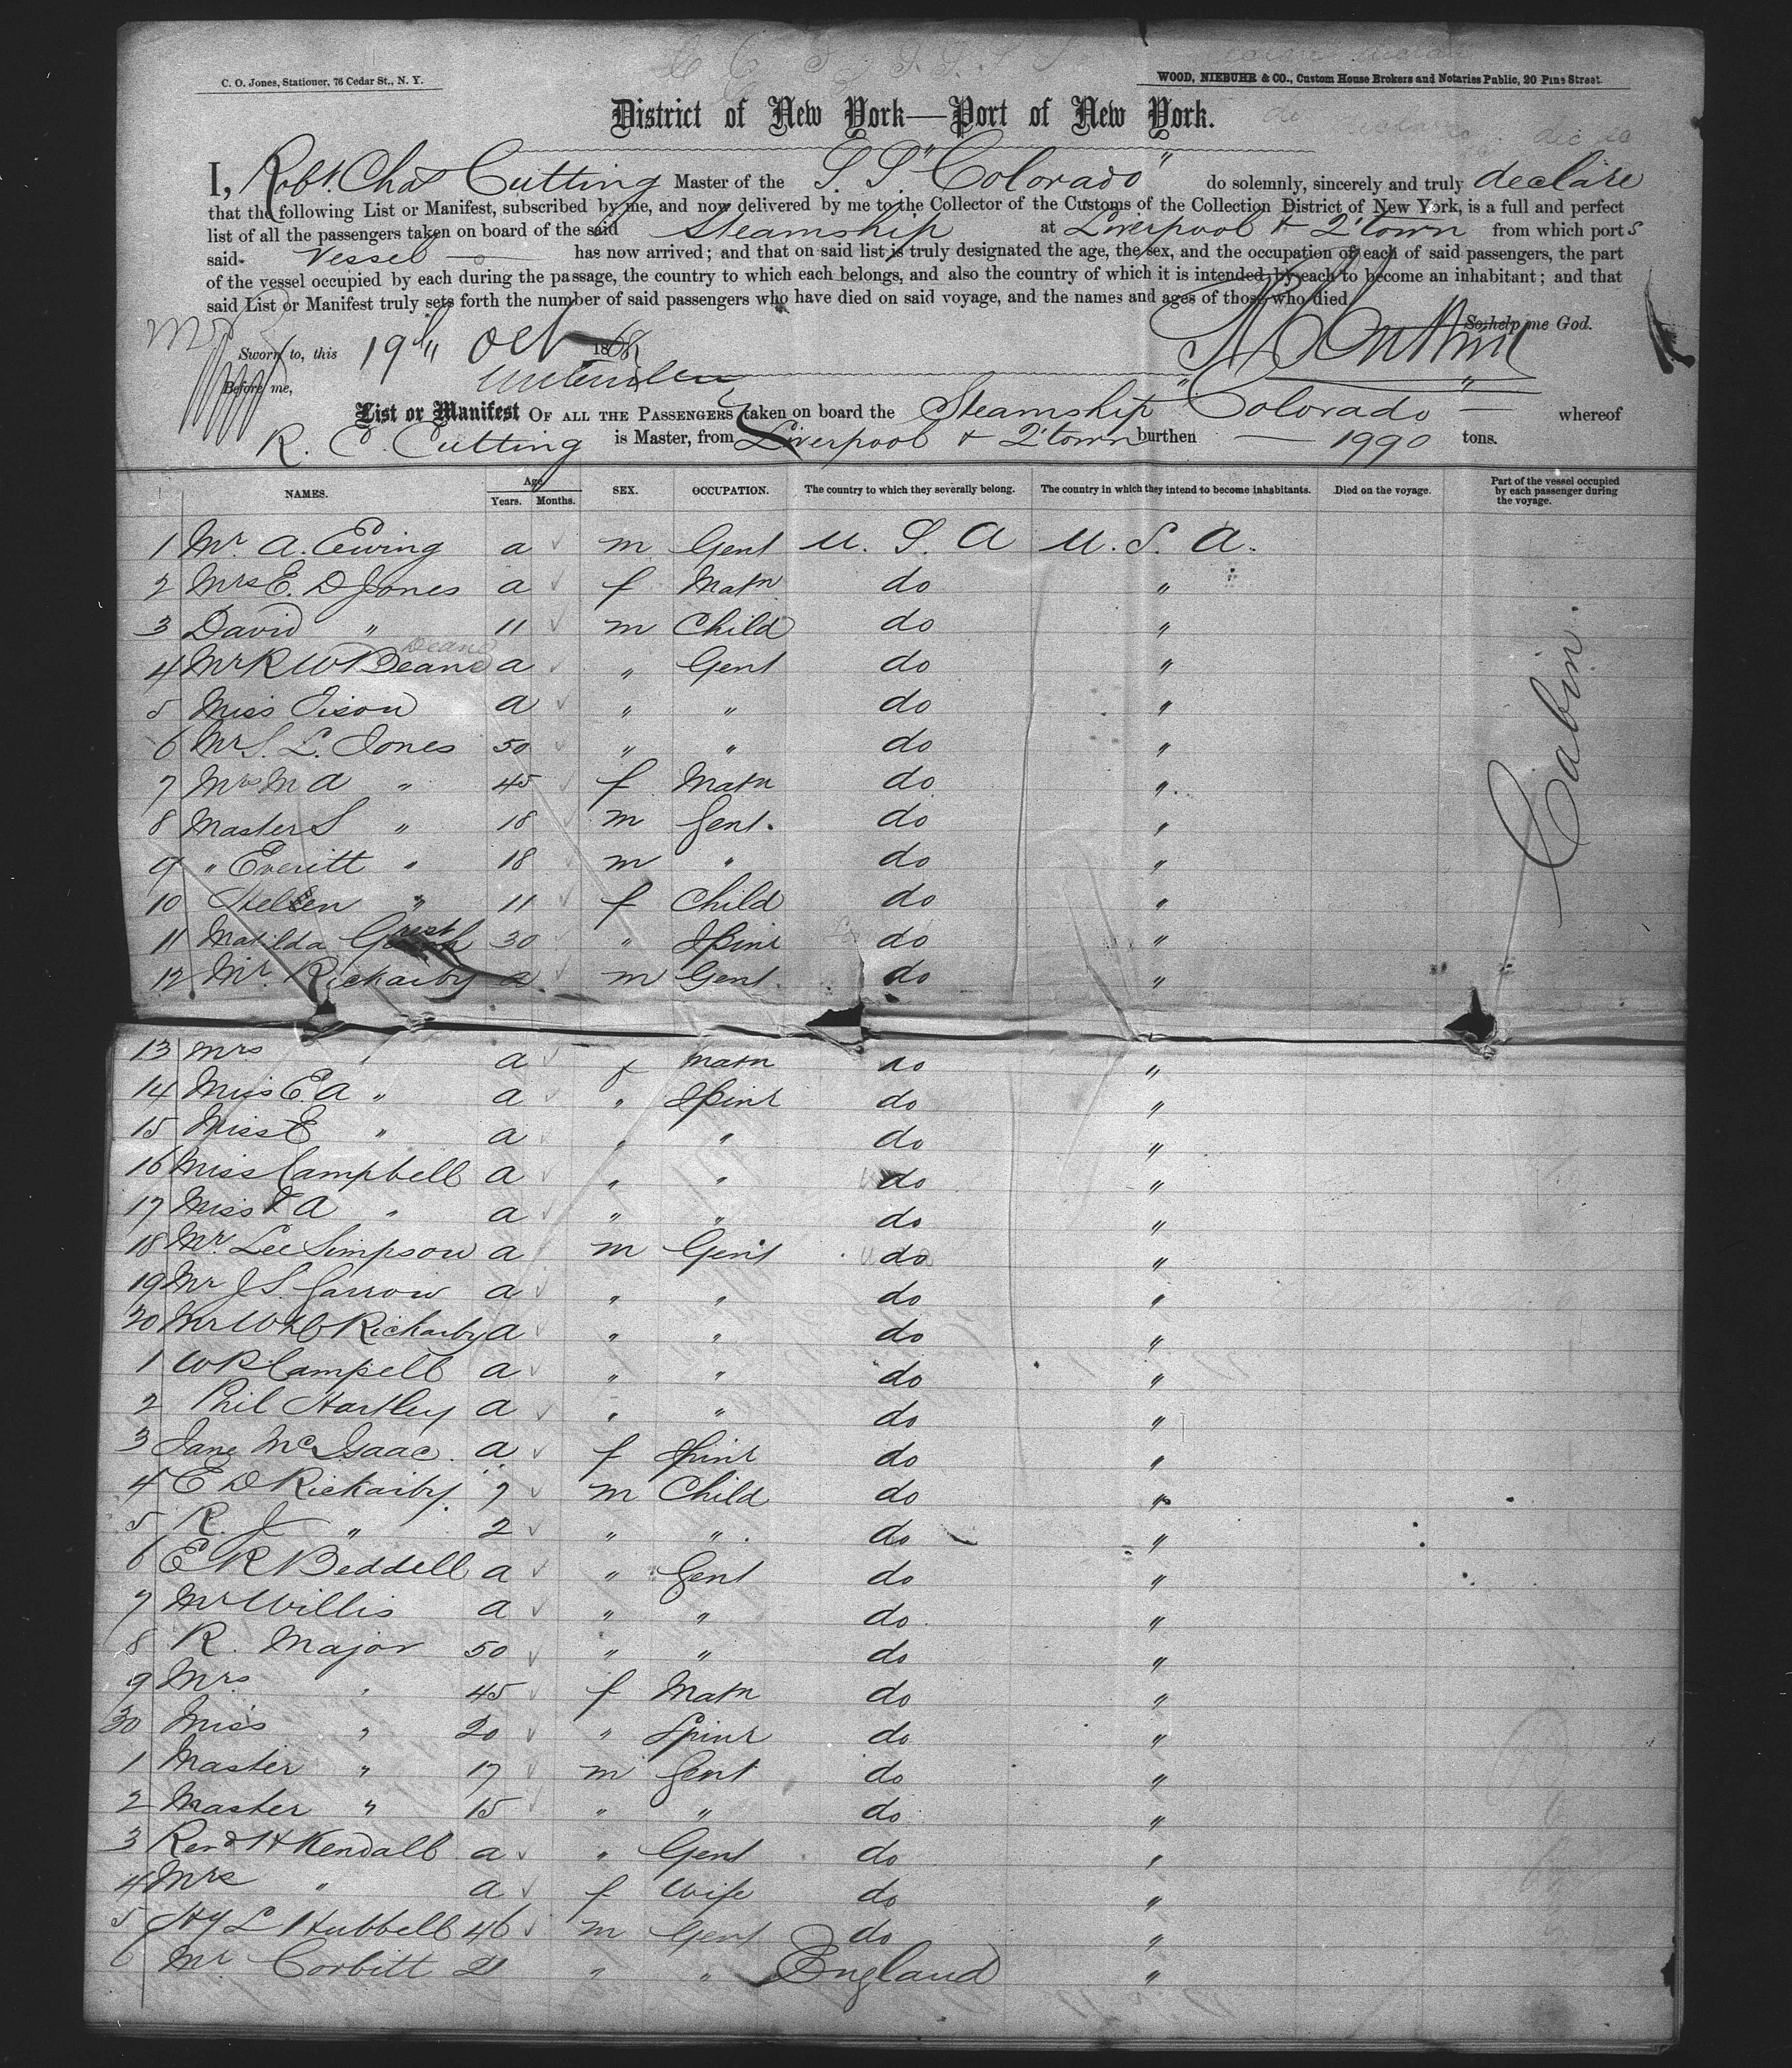 C. O. Jones, Stationer, 76 Cedar St., N. Y.
WOOD, NIEBUHR & CO., Custom House Brokers and Notaries Public, 20 Pine Street.
District of New York—Port of New York.
I, Robt. Chas Cutting Master of the S. S. "Colorado" do solemnly, sincerely and truly declare
that the following List or Manifest, subscribed by me, and now delivered by me to the Collector of the Customs of the Collection District of New York, is a full and perfect
list of all the passengers taken on board of the said Steamship at Liverpool & Q'town from which ports
said Vessel has now arrived; and that on said list is truly designated the age, the sex, and the occupation of each of said passengers, the part
of the vessel occupied by each during the passage, the country to which each belongs, and also the country of which it is intended by each to become an inhabitant; and that
said List or Manifest truly sets forth the number of said passengers who have died on said voyage, and the names and ages of those who died.
So help me God.
Sworn to, this 19th Oct 1868
Before me,
List or Manifest OF ALL THE PASSENGERS taken on board the Steamship "Colorado" whereof
R. C. Cutting is Master, from Liverpool & Q'town burthen 1990 tons.
NAMES. Age Years. Months. SEX. OCCUPATION. The country to which they severally belong. The country in which they intend to become inhabitants. Died on the voyage. Part of the vessel occupied by each passenger during the voyage.
1 Mr. A. Ewing a m Gent U. S. A U. S. A.
2 Mrs E. D Jones a f Matn do "
3 David " 11 m Child do "
Deane
4 Mr R W Beane a " Gent do "
5 Miss a " " do "
6 Mr S. L. Jones 50 " " do "
7 Mrs M A " 45 f Matn do "
8 Master S " 18 m Gent. do "
9 " Everitt " 18 m " do "
10 Hellen " 11 f Child do "
11 Matilda 30 " Spinr do "
12 Mr. Rickarby a m Gent. do "
Cabin
13 Mrs " a f Matn do "
14 Miss E. A " a " Spinr do "
15 Miss E " a " " do "
16 Miss Campbell a " " do "
17 Miss A " a " " do "
18 Mr. Lee Simpson a m Gent do "
19 Mr J S. Garrow a " " do "
20 Mr Rickarby a " " do "
1 W R Campell a " " do "
2 Phil Hartley a " " do "
3 Jane McIsaac. a f Spinr do "
4 E D Rickarby. 7 m Child do "
5 R. J " 2 " " do "
6 E R Beddell a " Gent do "
7 Mr Willis a " " do "
8 R. Major 50 " " do "
9 Mrs " 45 f Matn do "
30 Miss " 20 " Spinr do "
1 Master " 17 m Gent do "
2 Master " 15 " " do "
3 Revd H Kendall a " Gent do "
4 Mrs " a f Wife do "
5 Hy L Hubbell 46 m Gent do "
6 Mr Corbitt 21 " " England "